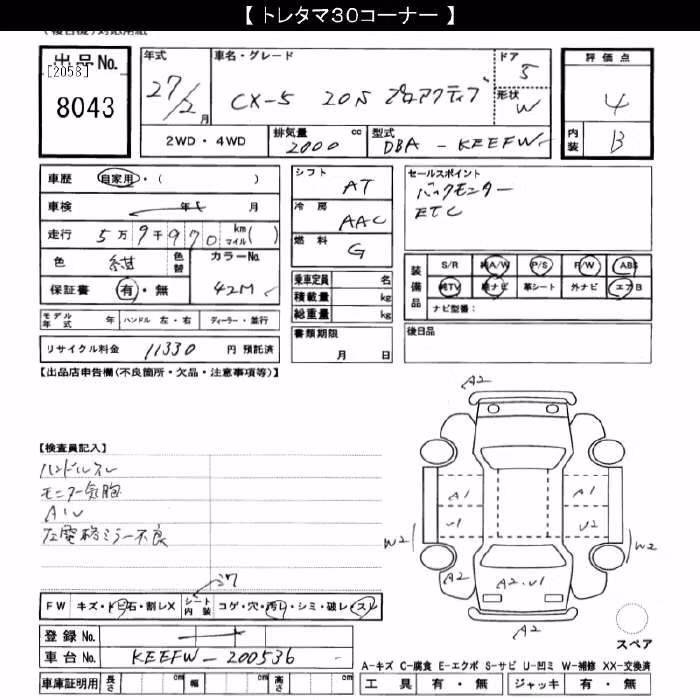 【 トレタマ30コーナー 】
出品No.
[2058]
8043
年式
27/2月
車名・グレード
CX-5 20S プロアクティブ
ドア
5
形状
W
評価点
4
内装
B
2WD・4WD
排気量 cc
2000
型式
DBA-KEEFW
車歴 自家用・( )
車検 年 月
走行 5万9千970 km マイル( )
色 紺 色替 カラーNo. 42M
保証書 有・無
モデル年式 年 ハンドル 左・右 ディーラー・並行
リサイクル料金 11330 円 預託済
シフト AT
冷房 AAC
燃料 G
乗車定員 名
積載量 kg
総重量 kg
書類期限
月 日
セールスポイント
バックモニター
ETC
装備品
S/R 純A/W P/S P/W ABS
純TV 純ナビ 革シート 外ナビ エアB
ナビ型番:
後日品
【出品店申告欄(不良箇所・欠品・注意事項等)】
【検査員記入】
ハンドルスレ
モニター気胞
AIU
左電格ミラー不良
FW キズ・トビ石・割レX シート内装 コゲ・穴・汚レ・シミ・破レ・スレ
登録No.
車台No. KEEFW-200536
車庫証明用 長さ cm 幅 cm 高さ cm
A2
A1 A1
U1 U2
W2 W2
A2 A2・U1 A2
A2
スペア
A-キズ C-腐食 E-エクボ S-サビ U-凹ミ W-補修 XX-交換済
工具 有・無 ジャッキ 有・無